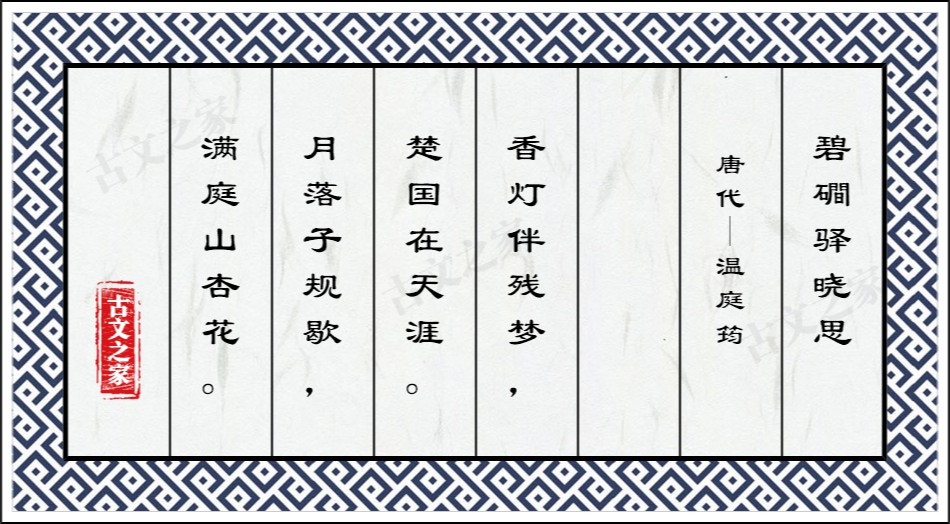 碧磵驿晓思
唐代—温庭筠
香灯伴残梦，
楚国在天涯。
月落子规歇，
满庭山杏花。
古文之家
古文之家
古文之家
古文之家